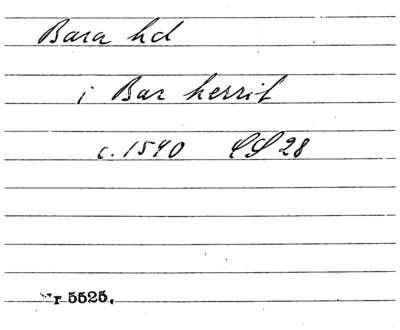 Bara hd
i Bar herrit
c. 1540 LL 28
Nr 5525.